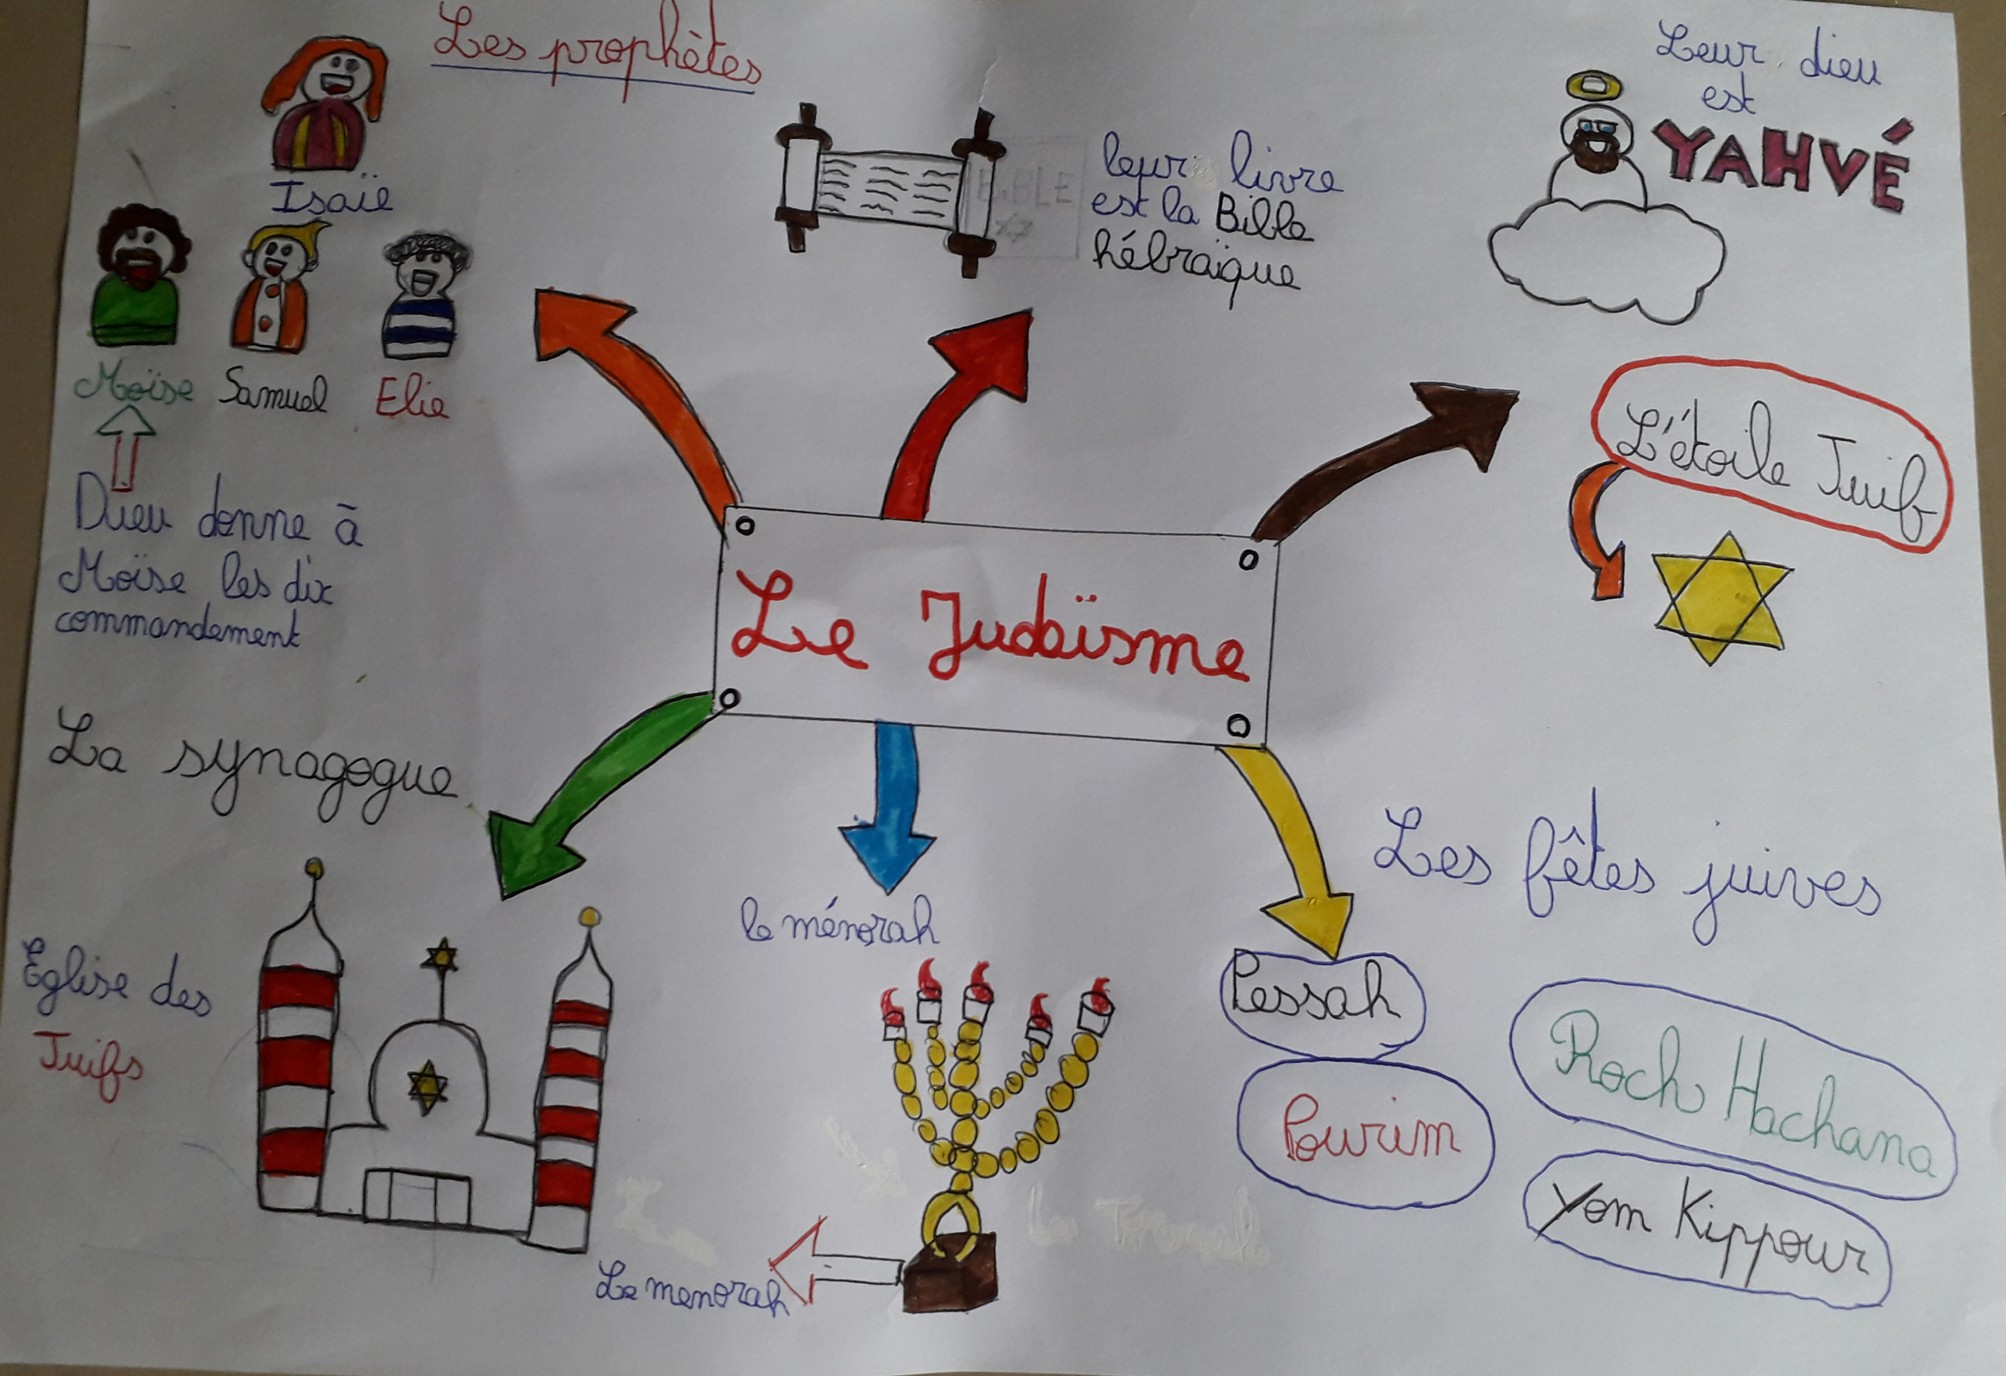 Les prophètes
Isaïe
Moïse Samuel Elie
Dieu donne à
Moïse les dix
commandement
BiBLE
leur livre
est la Bible
hébraïque
Leur dieu
est
YAHVÉ
L'étoile Juif
Le Judaïsme
La synagogue
Eglise des
Juifs
le ménorah
Le menorah
Les fêtes juives
Pessah
Pourim
Roch Hachana
Yom Kippour